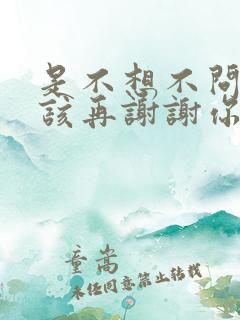 是不想不問
該再謝謝你
童嵩
未经同意禁止转载